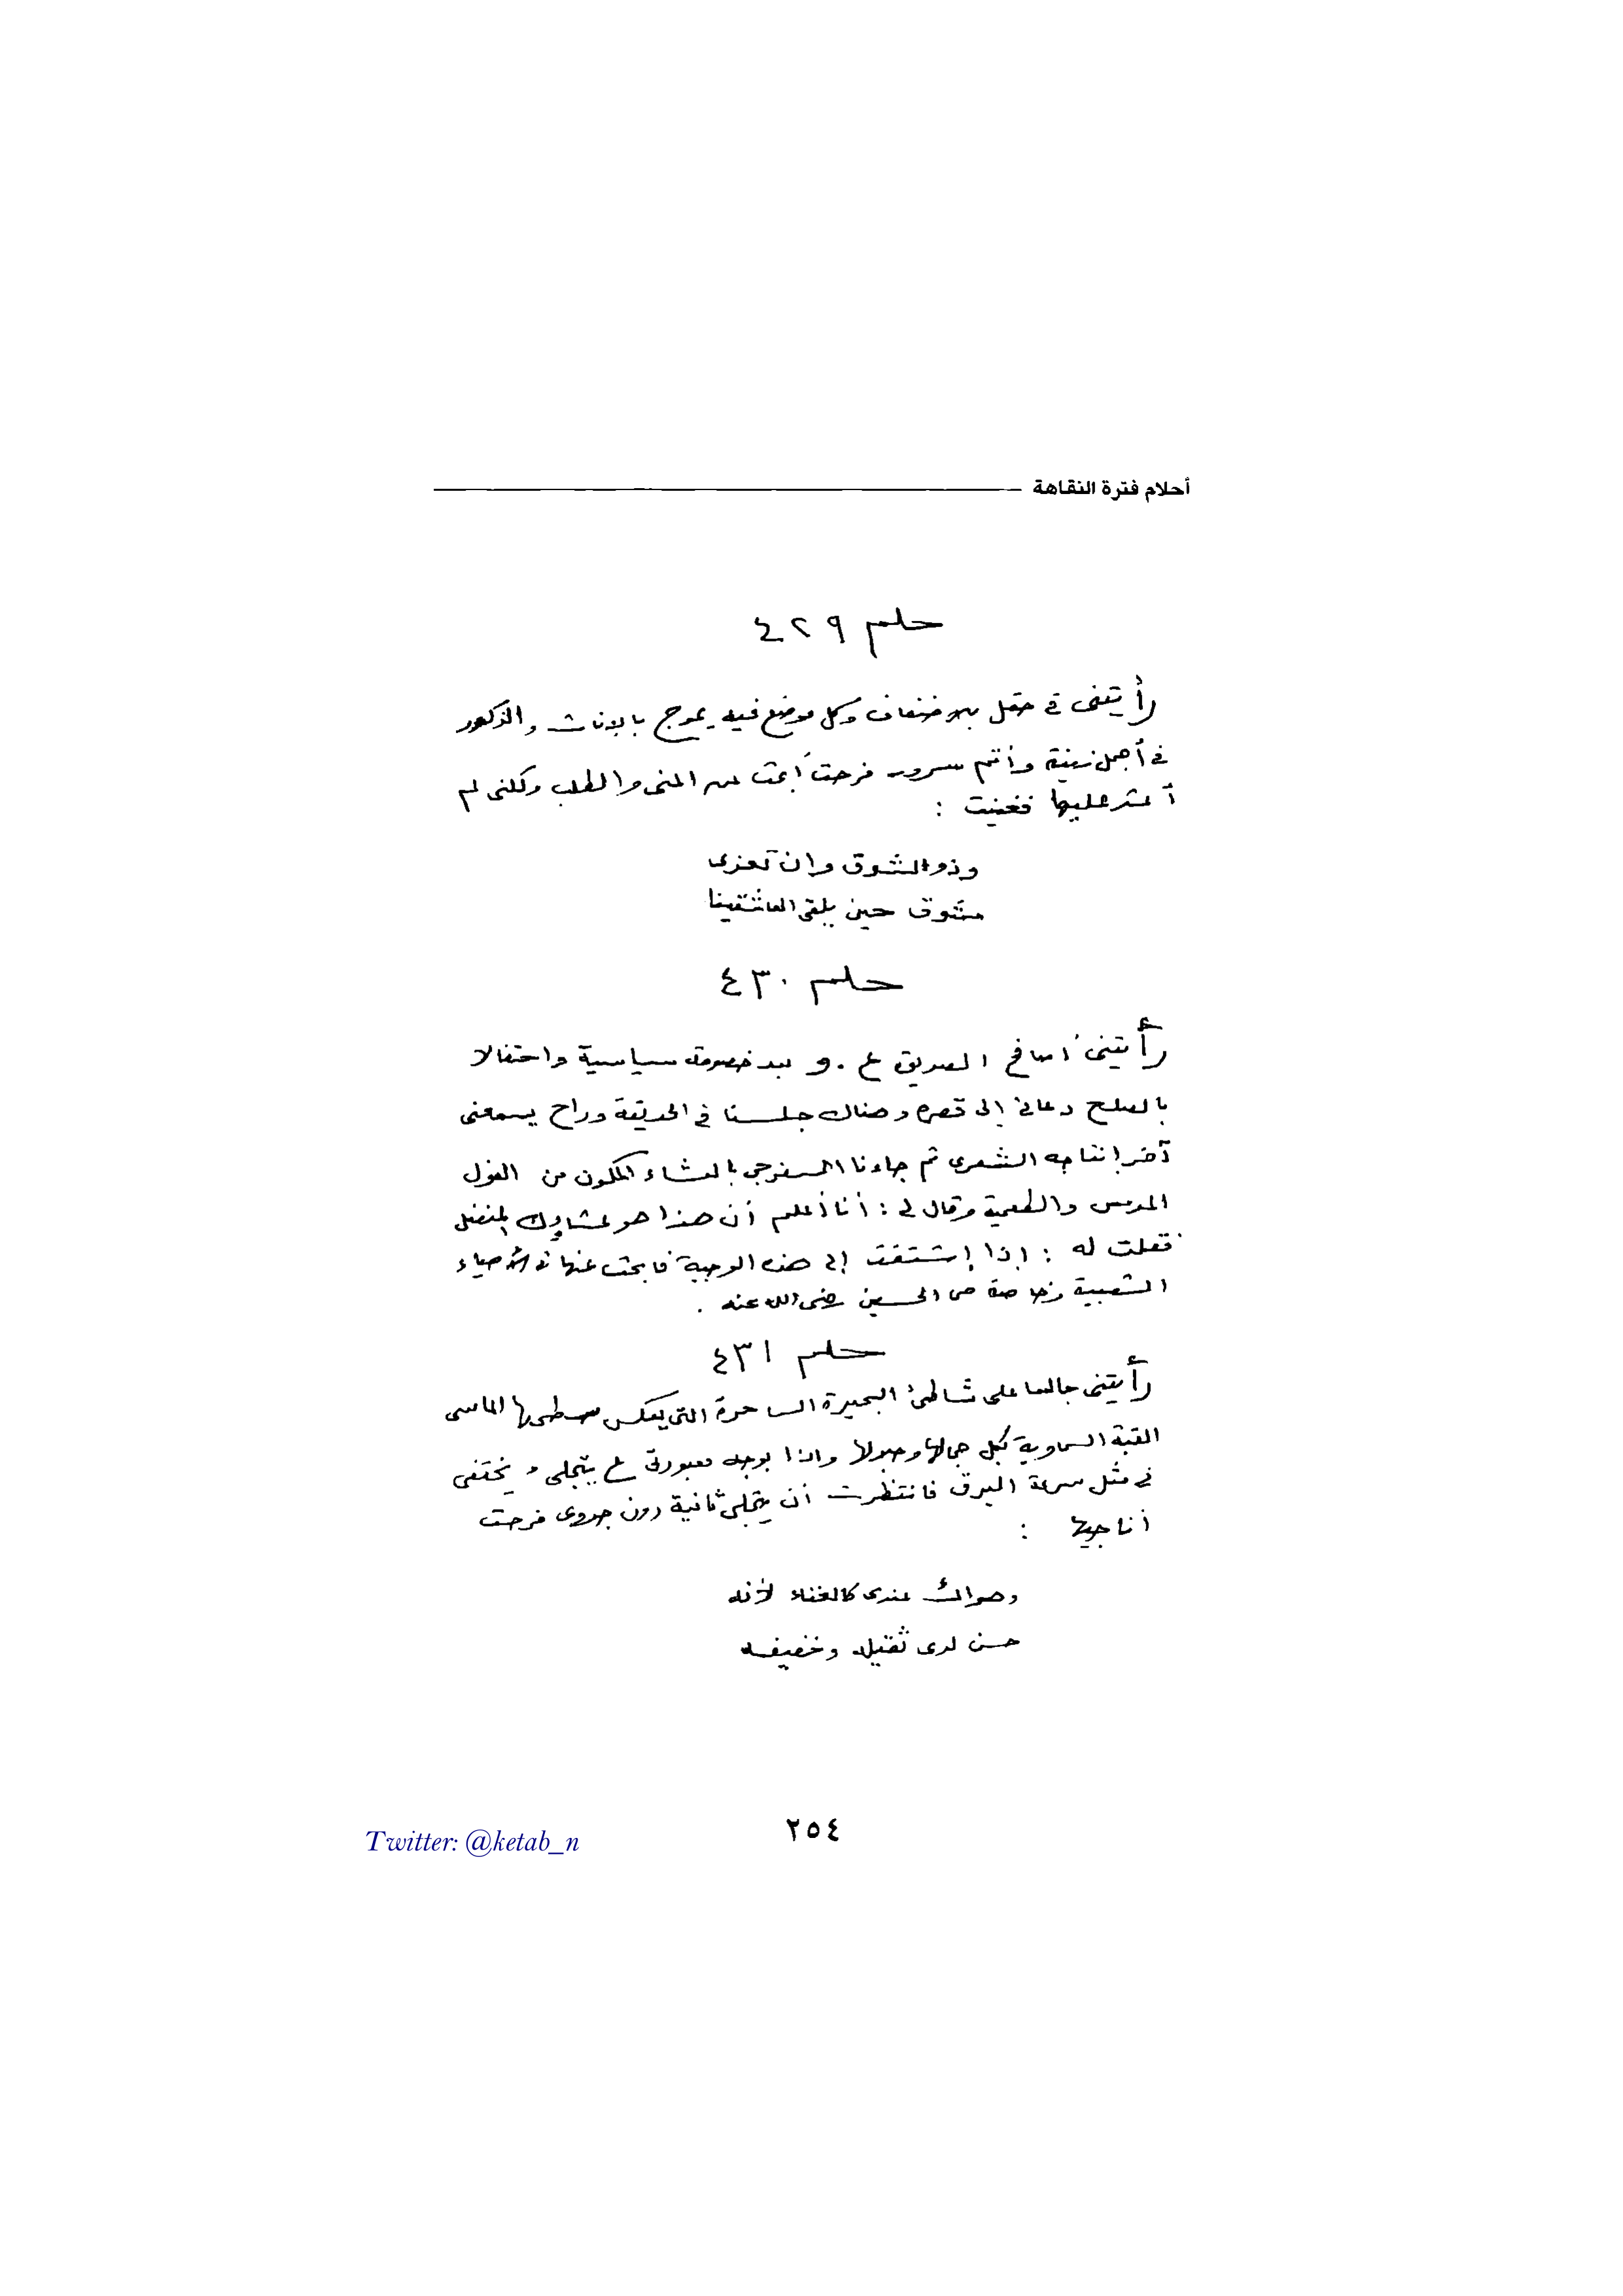 أحلام فترة النقاهة
حلم ٤٢٩
رأيتنى فى حقل بلا ضفاف وكل موضع فيه يموج بالإناث والذكور
فى أجمل زينة وأتم سرور فرحت أبحث عن المنى والطلب ولكنى لم
أعثر عليها فغنيت :
وذو الشوق وإن تعزى
مشوق حين يلقى العاشقينا
حلم ٤٣٠
رأيتنى أصافح الصديق ع . و بعد خصومة سياسية واحتفالا
بالصلح دعانى إلى قصره وهناك جلسنا فى الحديقة وراح يسمعنى
آخر إنتاجه الشعرى ثم جاءنا السفرجى بالعشاء المكون من الفول
المدمس والطعمية وقال لى : أنا أعلم أن هذا هو عشاؤك المفضل
فقلت له : إذا إشتقت إلى هذه الوجبة فابحث عنها فى الأحياء
الشعبية وخاصة حى الحسين رضى الله عنه .
حلم ٤٣١
رأيتنى جالسا على شاطئ البحيرة الساحرة التى يعكس سطحها الماسى
القبة السماوية بكل جمالها وجلالها وإذا بوجه معبودتى ع يتجلى ويختفى
فى مثل سرعة البرق فانتظرت أن يتجلى ثانية دون جدوى فرحت
أناجيها :
وهواك عندى كالغناء لأنه
حسن لدى ثقيله وخفيفه
٢٥٤
Twitter: @ketab_n